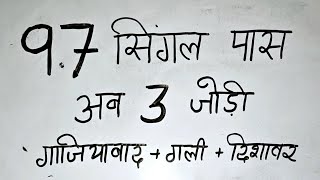 97 सिंगल पास
अब 3 जोड़ी
गाजियाबाद + गली + दिशावर